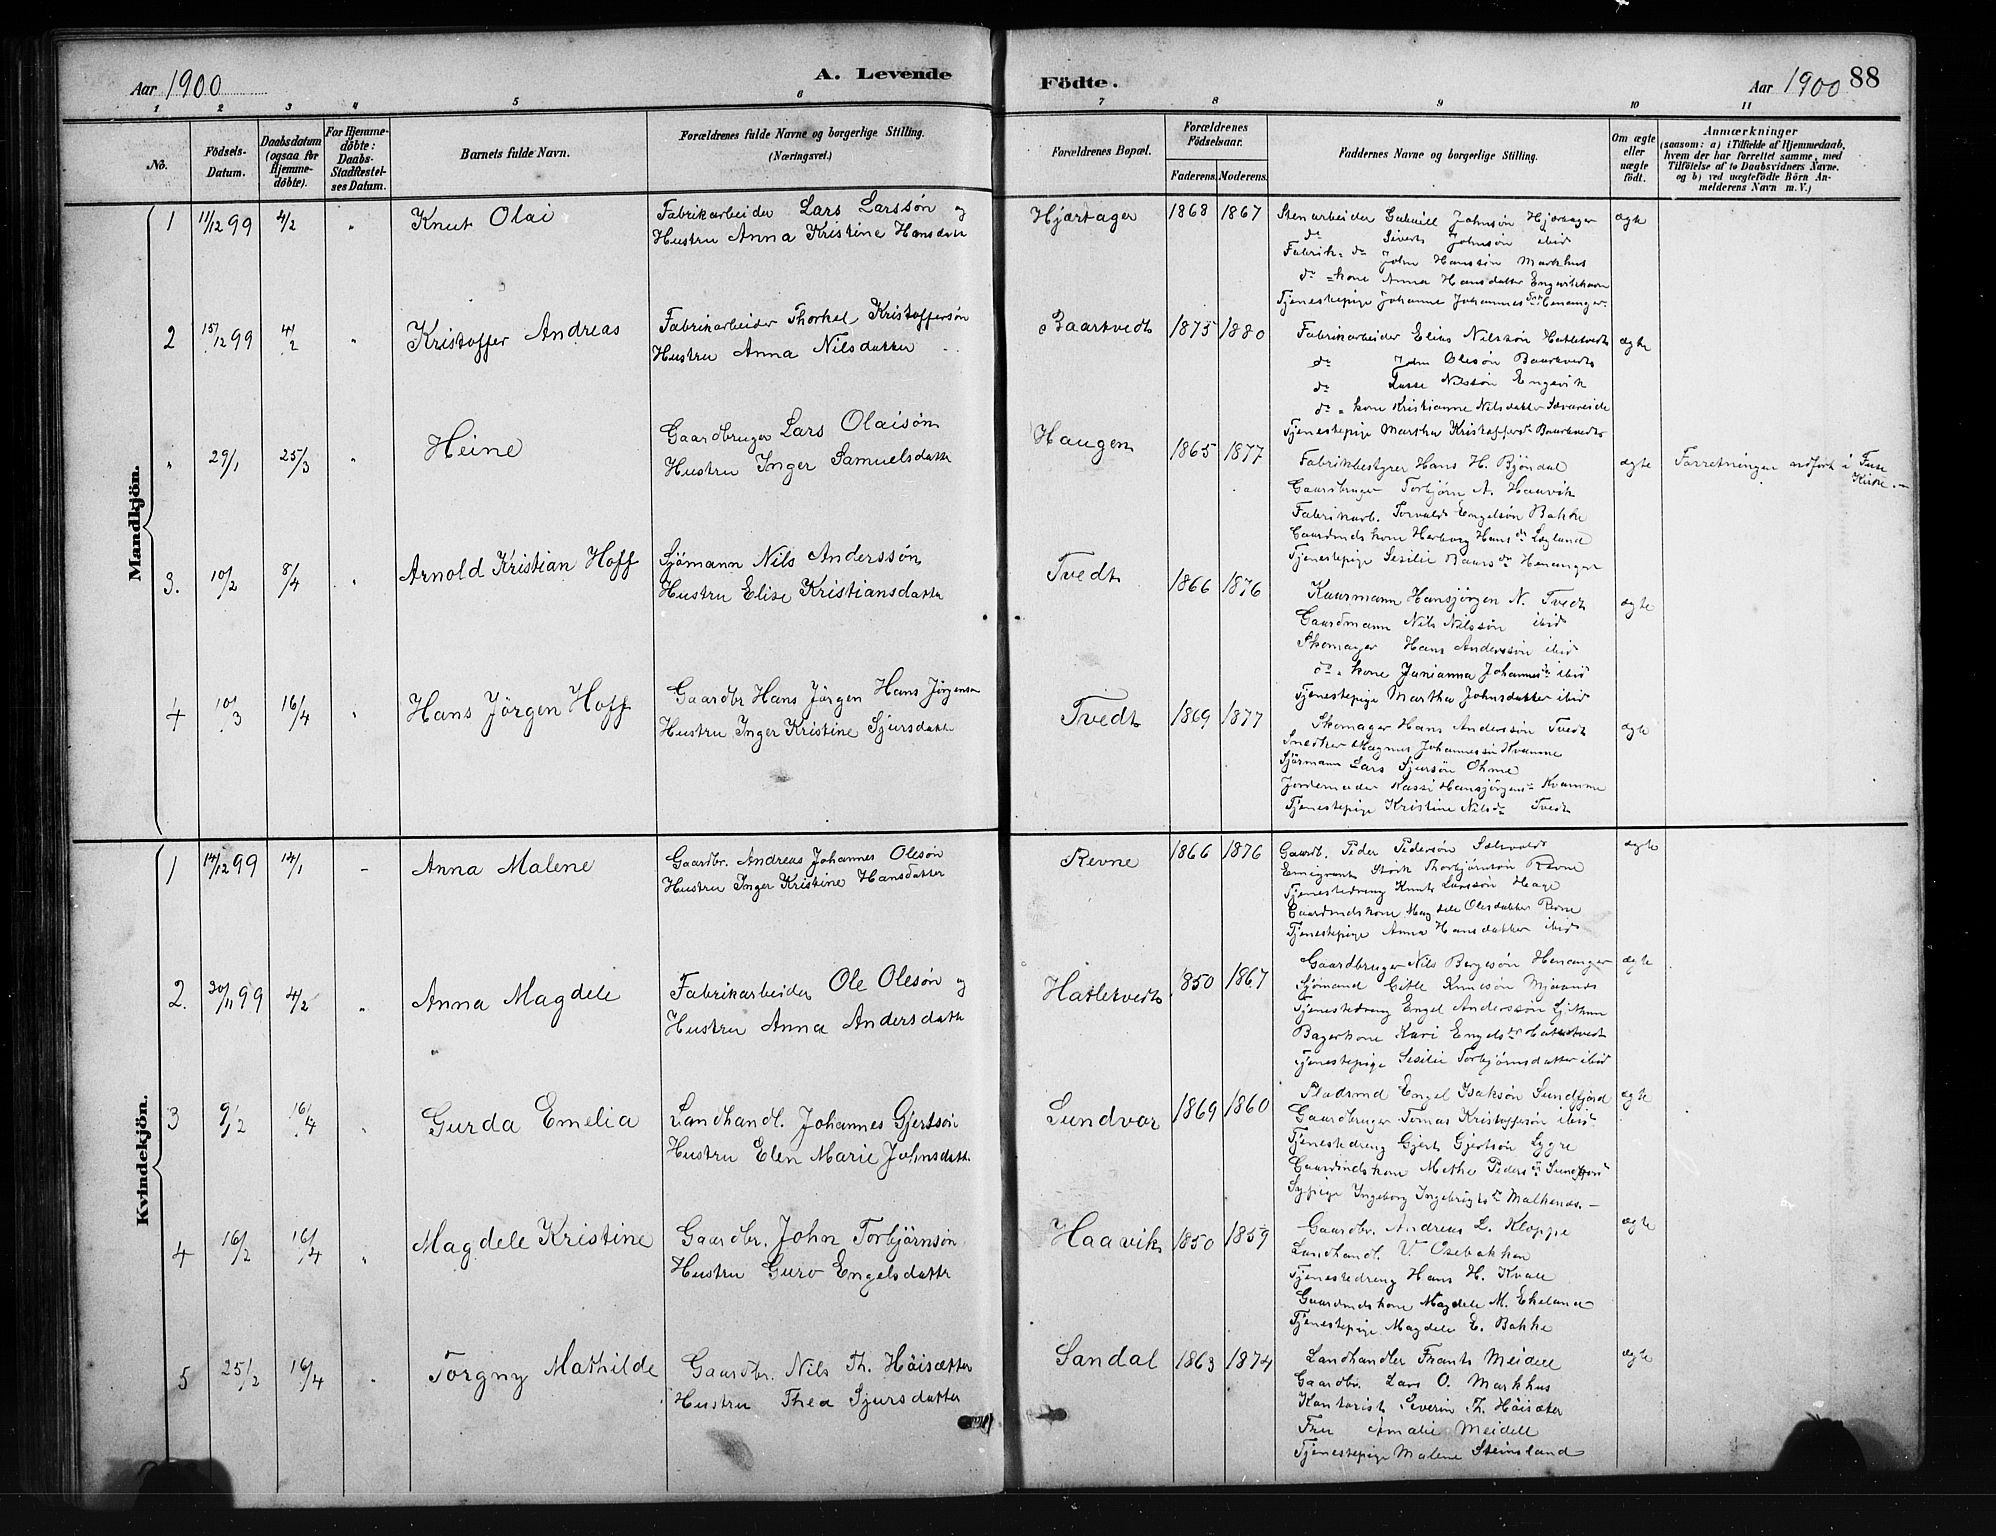 Aar 1900
A. Levende
Födte.
Aar 1900
88
1 2 3 4 5 6 7 8 9 10 11
No.
Födsels-
Datum.
Daabsdatum
(ogsaa for
Hjemme-
döbte).
For Hjemme-
döbte:
Daabs-
Stadfæstel-
ses Datum.
Barnets fulde Navn.
Forældrenes fulde Navne og borgerlige Stilling.
(Næringsvei.)
Forældrenes Bopæl.
Forældrenes
Födselsaar.
Faderens. Moderens.
Faddernes Navne og borgerlige Stilling.
Om ægte
eller
uægte
födt.
Anmærkninger
(saasom: a) i Tilfælde af Hjemmedaab,
hvem der har forrettet samme, med
Tilföielse af to Daabsvidners Navne.
og b) ved uægtefödte Börn An-
melderens Navn m. V.)
Mandkjön.
1 11/12 99 4/2 " Knut Olai
Fabrikarbeider Lars Larssön og
Hustru Anna Kristine Hansdatt
Hjartager 1868 1867
Stenarbeider Gabriell Johnsön Hjartager
do Siverts Johnsön ibid
Fabrik= do John Hanssön Markhus
do =kone Anna Hansdatter Engevikhavn
Tjenestepige Johanne Johannesdtr Henanger
ægte
2 15/12 99 4/2 " Kristoffer Andreas
Fabrikarbeider Thorkel Kristoffersön
Hustru Anna Nilsdatter
Baartvedt 1875 1880
Fabrikarbeider Elias Nilssön Hatletvedt
do John Olesön Baartvedt
do Lasse Nilssön Engevik
do =kone Kristianne Nilsdatter Sævareide
Tjenestepige Martha Kristoffersdr Baartvedt
ægte
" 29/1 25/3 " Heine
Gaardbruger Lars Olaisön
Hustru Inger Samuelsdatt
Haugen 1865 1877
Fabrikbestyrer Hans H. Bjöndal
Gaardbruger Torbjörn A. Haavik
Fabrikarb. Torvald Engelsön Bakke
Gaardmds kone Herborg Hansdr Lægland
Tjenestepige Sesilie Baarsdr Henanger
ægte
Forretningen udfört i Fuse
Kirke.
3. 10/2 8/4 " Arnold Kristian Hoff
Sjömann Nils Anderssön
Hustru Elise Kristiansdatte
Tvedt 1866 1876
Kaarmann Hansjörgen N. Tvedt
Gaardmann Nils Nilssön ibid
Skomager Hans Anderssön ibid
do = kone Janianna Johannesdr ibid
Tjenestepige Martha Johnsdatter ibid
ægte
4 10/3 16/4 " Hans Jörgen Hoff
Gaardbr Hans Jörgen Hans Jörgensn
Hustru Inger Kristine Sjursdatte
Tvedt 1869 1877
Skomager Hans Anderssön Tvedt
Snedker Magnus Johannessön Kvamme
Sjömann Lars Sjursön Ohme
Jordemoder Kassi Hansjörgensdr Kvamme
Tjenestepige Kristine Nilsdr Tvedt
ægte
Kvindekjön.
1 14/12 99 14/1 - Anna Malene
Gaardbr. Andreas Johannes Olesön
Hustru Inger Kristine Hansdatter
Revne 1866 1876
Gaardb. Peder Pedersön
Emigrant Störk Thorbjörnsön Revne
Tjenestedreng Knut Larssön Hage
Gaardmdskone Magdele Olesdatter Revne
Tjenestepige Anna Hansdatter ibid
ægte
2. 30/11 99 4/2 " Anna Magdele
Fabrikarbeider Ole Olesön og
Hustru Anna Andersdatt
Hatletvedt 1850 1867
Gaardbruger Nils Bergesön Henanger
Sjömand Gitle Knutsön Mjaanes
Tjenestedreng Engel Anderssön
Bagerkone Kari Engelsdtr Hatletvedt
Tjenestepige Sesilie Torbjörnsdatter ibid
ægte
3 9/12 16/4 " Gurda Emelia
Landhandl. Johannes Gjertsön
Hustru Elen Marie Johnsdatt.
Sundvor 1869 1860
Pladsmd Engel Isaksön Sundfjord
Gaardbruger Tomas Kristoffersön ibid
Tjenestedreng Gjert Gjertsön Lygre
Gaardmdskone Methe Pedersdr
Sypige Ingeborg Ingebrigtsdr Malkenes.-
ægte
4 16/2 16/4 " Magdele Kristine
Gaardbr. John Torbjörnsön
Hustru Guro Engelsdatte
Haavik 1850 1859
Gaardbr. Andreas L. Kloppe
Landhandl. V. Osebakken
Tjenestedreng Hans H. Kvale
Gaardmdskone Magdele M. Ekeland
Tjenestepige Magdele E. Bakke
ægte
5 25/2 16/4 " Torgny Mathilde
Gaardbr. Nils Th. Höisætter
Hustru Thea Sjursdatter
Sandal 1863 1874
Landhandler Frants Meidell
Gaardbr. Lars O. Markhus
Kontorist Severin Th. Höisæter
Fru Amalie Meidell
Tjenestepige Malene Steinsland
ægte